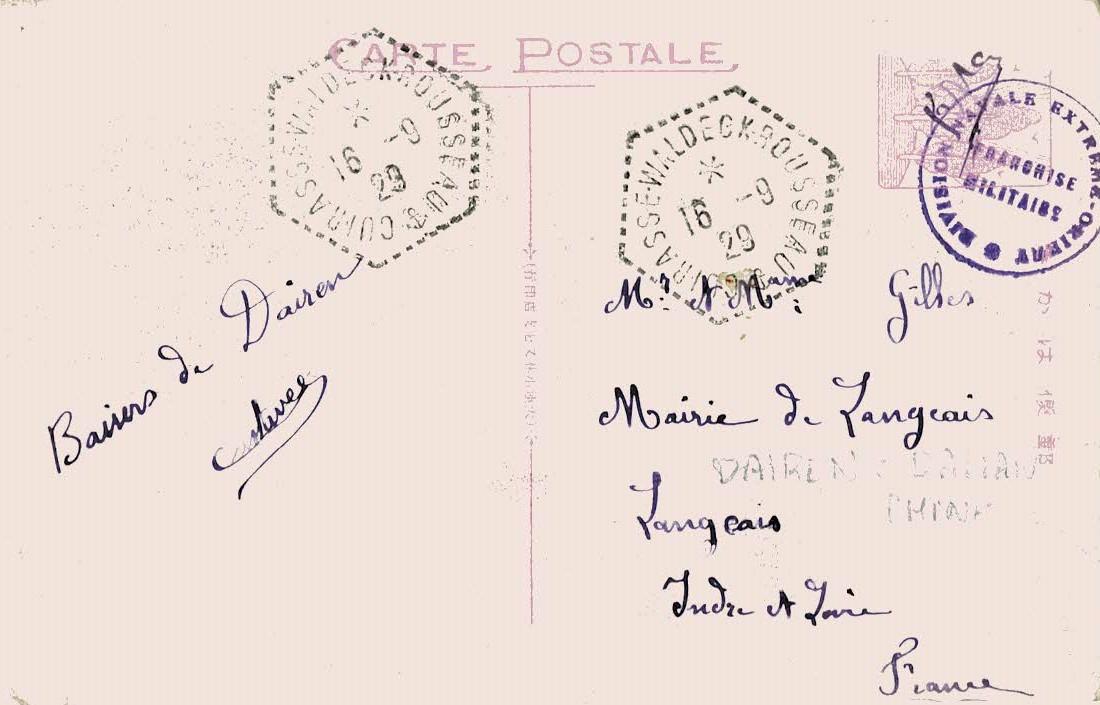 CARTE POSTALE
CUIRASSE WALDECK ROUSSEAU
* 16 -9 29
CUIRASSE WALDECK ROUSSEAU
* 16 -9 29
DIVISION NAVALE EXTREME-ORIENT
FRANCHISE
MILITAIRE
Baisers de Dairen
Mr. et Mme: Gilles
Mairie de Langeais
Langeais
Indre et Loire
France
DAIREN : DALIAN
CHINE
きかは便郵